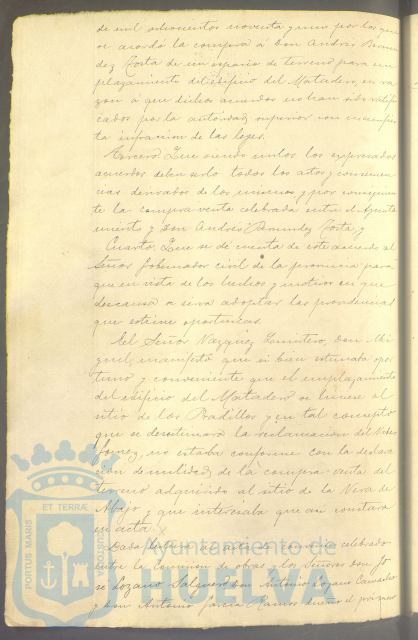 de mil ochocientos noventa y uno por los que
se acordó la compra a Don Andrés Bermu
dez Tosta de un espacio de terreno para em
plazamiento del edificio del Matadero, en ra
zon a que dichos acuerdos no han sido ratifi
cados por la autoridad superior con manifies
ta infraccion de las leyes.
Tercero. Que siendo nulos los expresados
acuerdos deben serlo todos los actos y consecuen
cias derivados de los mismos y por consiguien
te la compra-venta celebrada entre el Ayunta
miento y Don Andrés Bermudez Tosta, y
Cuarto. Que se dé cuenta de este acuerdo al
Señor Gobernador civil de la provincia para
que en vista de los hechos y motivos en que
descansa se sirva adoptar las providencias
que estime oportunas.
El Señor Vazquez Don Mi
guel, manifestó que si bien estimaba opor
tuno y conveniente que el emplazamiento
del edificio del Matadero se hiciese al
sitio de los Pradillos y en tal concepto
que se desestimara la reclamacion del Señor
no estaba conforme con la declara
cion de nulidad de la compra-venta del
terreno adquirido al sitio de la Vera de
y que interesaba que asi constara
en acta.
Dada lectura del acta de convenio celebrado
entre la Comision de obras y los Señores Don Jo
sé Lozano Don Antonio Lozano
y Don Antonio Garcia Ramos dueño el primero
PORTUS MARIS
ET TERRAE
CUSTODIA
Ayuntamiento de
HUELVA